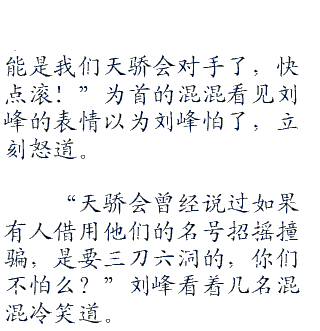 能是我们天骄会对手了，快
点滚！”为首的混混看见刘
峰的表情以为刘峰怕了，立
刻怒道。
“天骄会曾经说过如果
有人借用他们的名号招摇撞
骗，是要三刀六洞的，你们
不怕么？”刘峰看着几名混
混冷笑道。